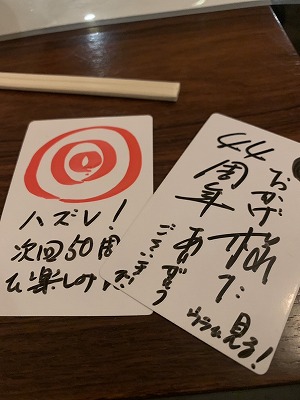 ハズレ!
次回50周
お楽しみ
おかげ様で
44周年
ありがとう
ございます
ウラを見る!